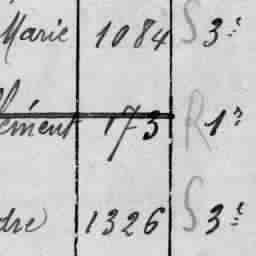 Marie 1084 S 3e
lément 173 R 1r
dre 1326 S 3e